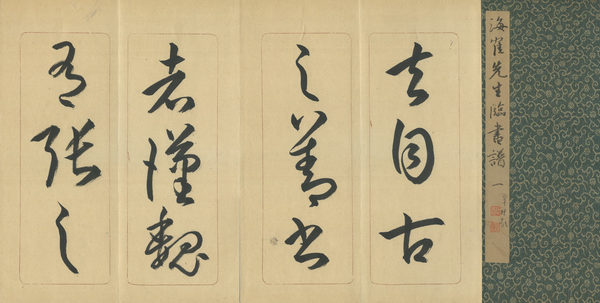 海寉先生臨書譜 一
夫自古
之善書
者漢魏
有張之